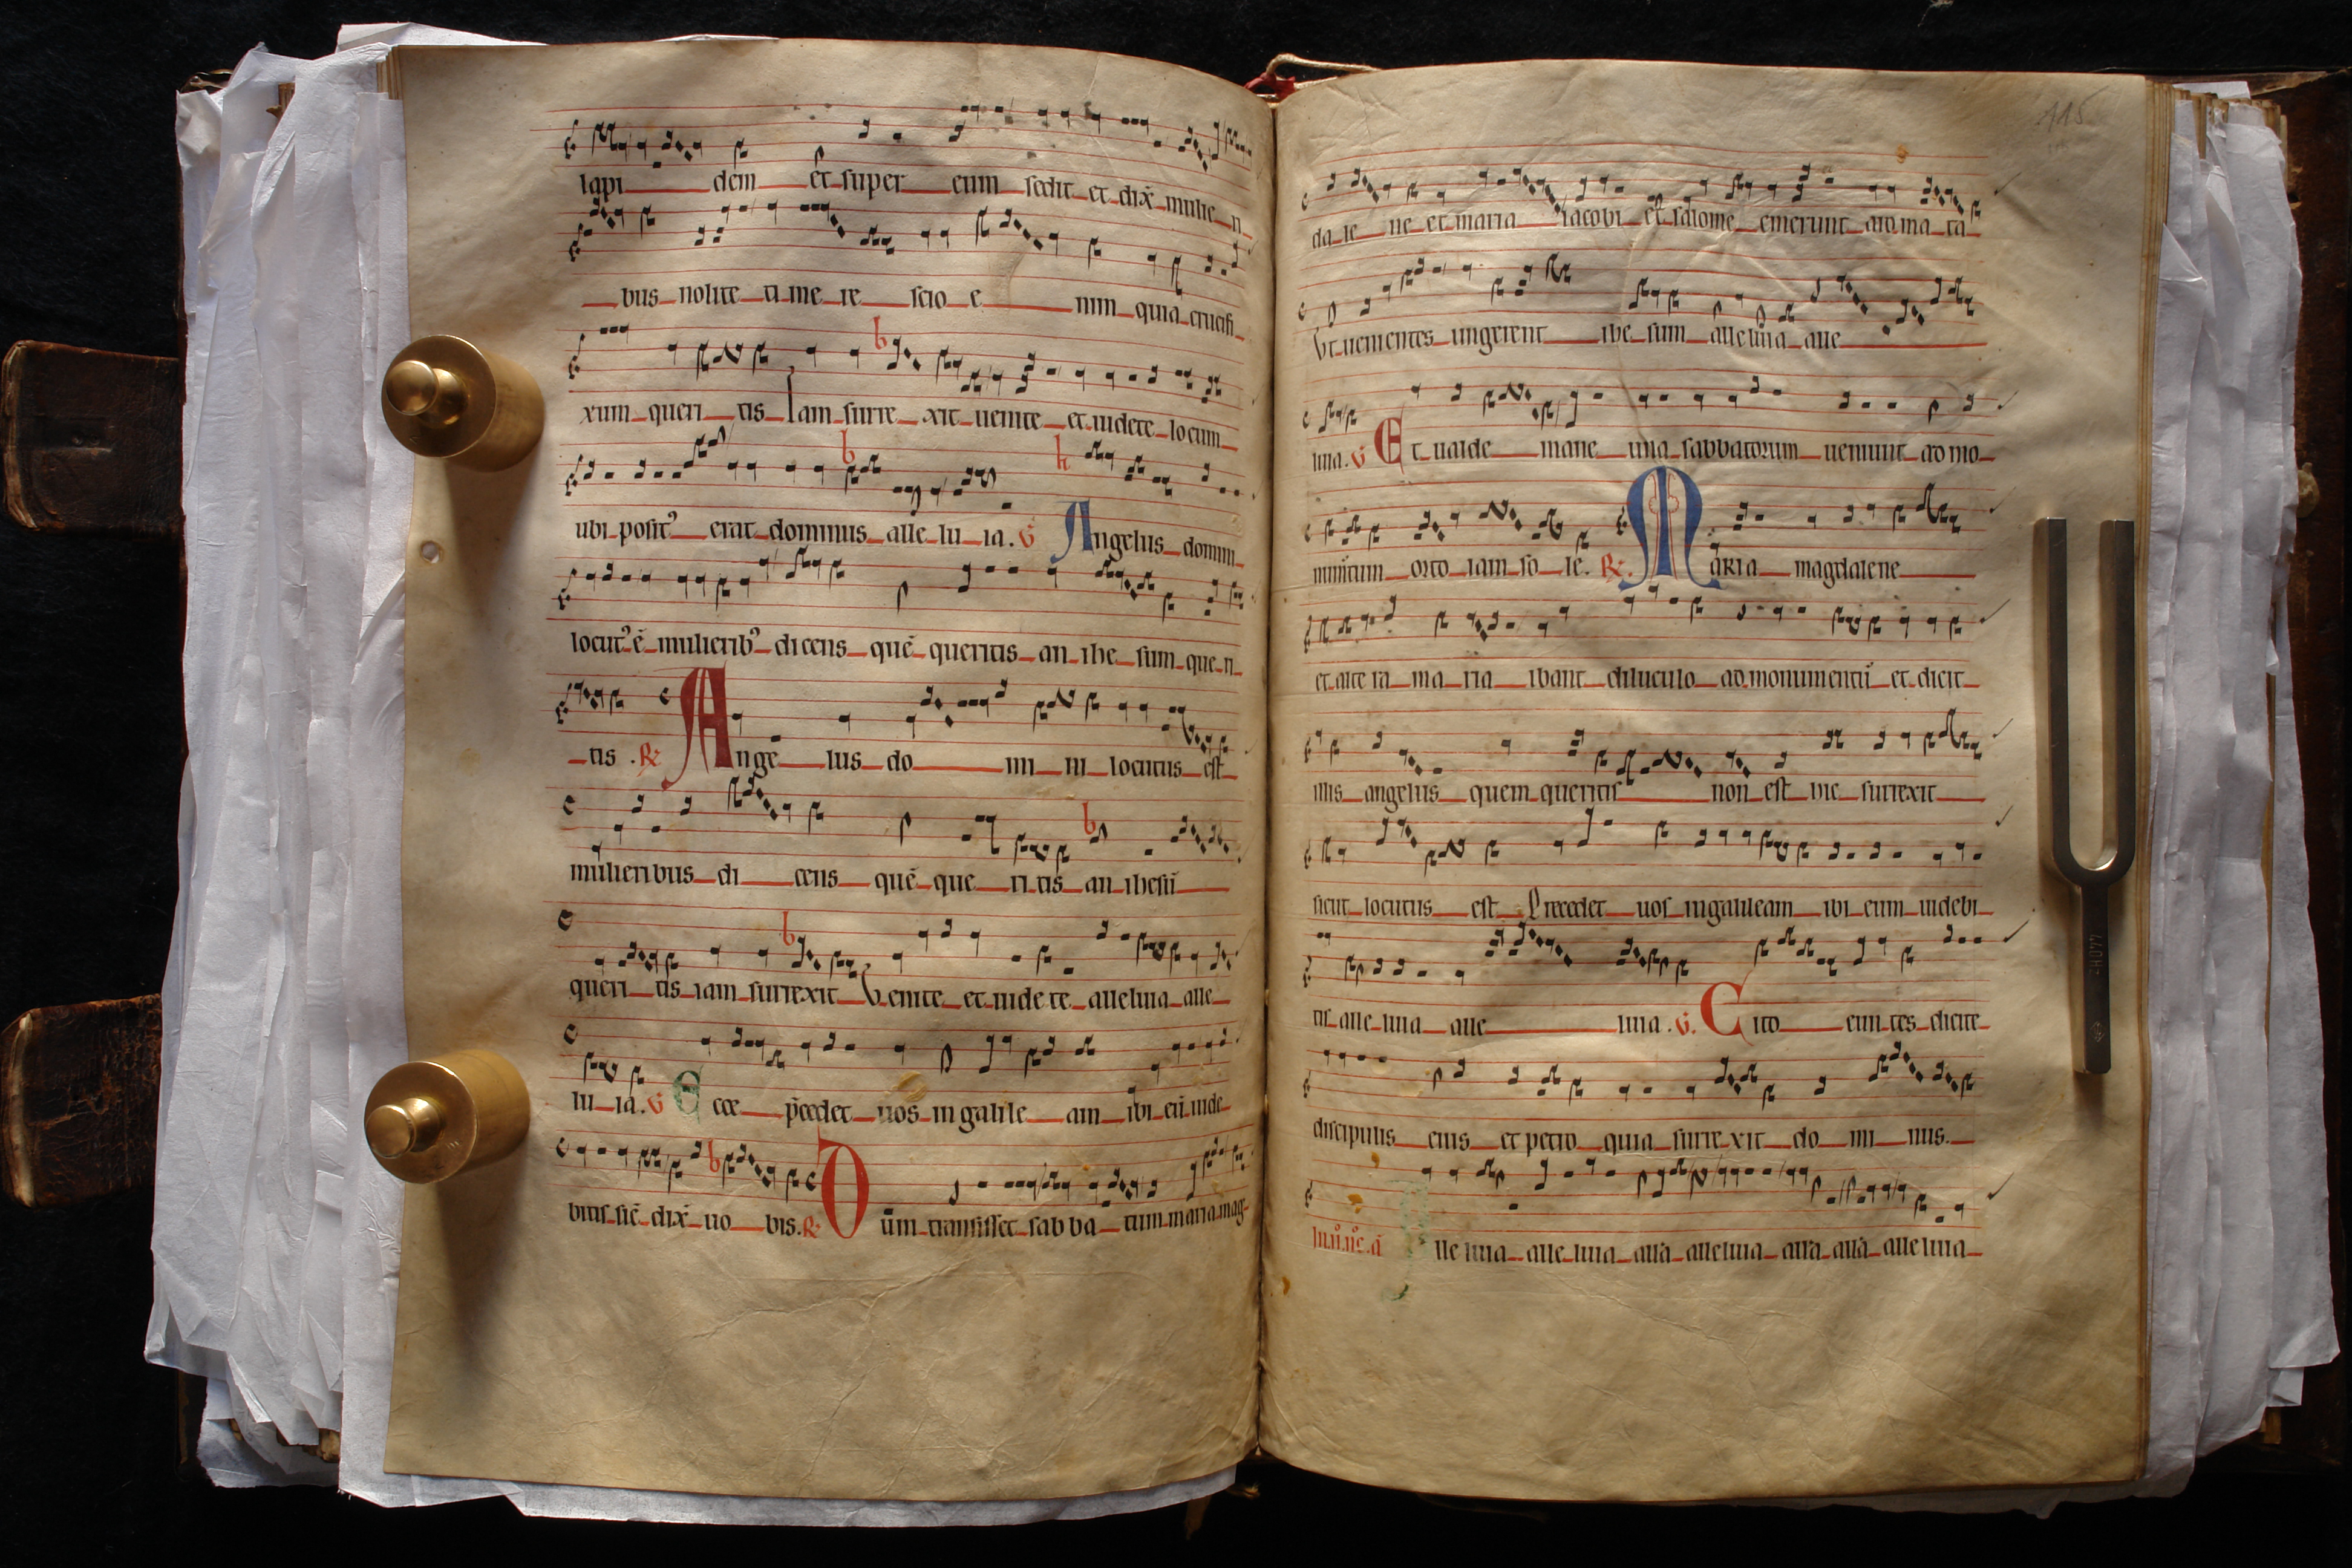 lapi dem et super eum sedit et dix̄ mulie ri
bus nolite ti me re scio e nim quia crucifi
xum queri tis Iam surre xit uenite et uidete locum
ubi posit᾽ erat dominus alle lu ia. V Angelus domini
locut᾽ ē mulierib᾽ dicens quē queritis an ihe sum que ri
tis . R Ange lus do mi ni locutus est
mulieribus di cens quē que ri tis an ihesū
queri tis iam surrexit Venite et uide te alleluia alle
lu ia. V Ecce p̄cedet uos in galile am ibi eū uide
bitis sic̄ dix̄ uo bis. R Dum transisset sab ba tum maria mag
115
da le ne et maria iacobi et salome emerunt aro ma ta
Vt uenientes ungerent ihe sum alleluia alle
luia. V Et ualde mane una sabbatorum ueniunt ad mo
numentum orto iam so le. R. Maria magdalene
et alte ra ma ria ibant diluculo ad monumentū et dicit
illis angelus quem queritis non est hic surrexit
sicut locutus est Precedet uos in galileam ibi eum uidebi
tis alle luia alle luia . V. Cito eun tes dicite
discipulis eius et petro quia surre xit do mi nus.
Alle luia alle luia alla alleluia alla alla alle luia
440HZ